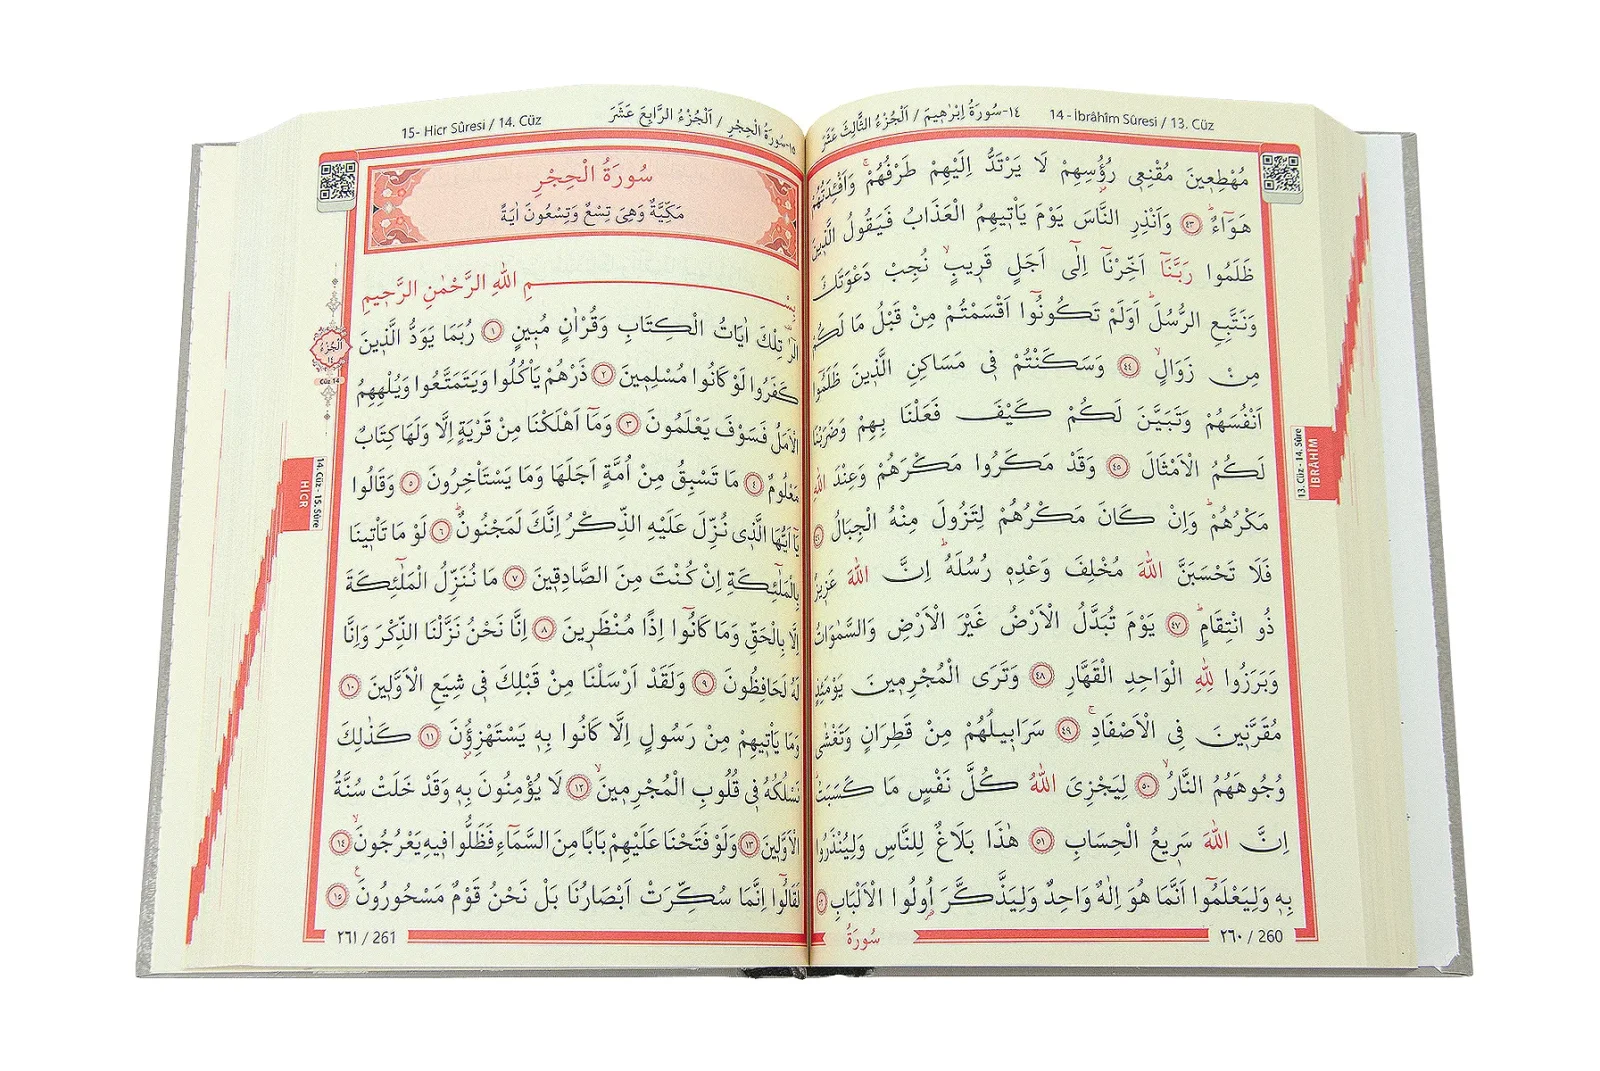 ١٤-سُورَةُ اِبْرٰهِيمَ / اَلْجُزْءُ الثَّالِثَ عَشَرَ 14 - İbrâhîm Sûresi / 13. Cüz
مُهْطِعِينَ مُقْنِعِى رُؤُسِهِمْ لَا يَرْتَدُّ اِلَيْهِمْ طَرْفُهُمْ وَاَفْئِدَتُهُمْ
هَوَٓاءٌ ﴿٤٣﴾ وَاَنْذِرِ النَّاسَ يَوْمَ يَأْتِيهِمُ الْعَذَابُ فَيَقُولُ الَّذِينَ
ظَلَمُوا رَبَّنَٓا اَخِّرْنَٓا اِلٰٓى اَجَلٍ قَرِيبٍ نُجِبْ دَعْوَتَكَ
وَنَتَّبِعِ الرُّسُلَ اَوَلَمْ تَكُونُٓوا اَقْسَمْتُمْ مِنْ قَبْلُ مَا لَكُمْ
مِنْ زَوَالٍ ﴿٤٤﴾ وَسَكَنْتُمْ فِى مَسَاكِنِ الَّذِينَ ظَلَمُٓوا
اَنْفُسَهُمْ وَتَبَيَّنَ لَكُمْ كَيْفَ فَعَلْنَا بِهِمْ وَضَرَبْنَا
لَكُمُ الْاَمْثَالَ ﴿٤٥﴾ وَقَدْ مَكَرُوا مَكْرَهُمْ وَعِنْدَ اللّٰهِ
مَكْرُهُمْ وَاِنْ كَانَ مَكْرُهُمْ لِتَزُولَ مِنْهُ الْجِبَالُ ﴿٤٦﴾
فَلَا تَحْسَبَنَّ اللّٰهَ مُخْلِفَ وَعْدِهِ رُسُلَهُ اِنَّ اللّٰهَ عَزِيزٌ
ذُو انْتِقَامٍ ﴿٤٧﴾ يَوْمَ تُبَدَّلُ الْاَرْضُ غَيْرَ الْاَرْضِ وَالسَّمٰوَاتُ
وَبَرَزُوا لِلّٰهِ الْوَاحِدِ الْقَهَّارِ ﴿٤٨﴾ وَتَرَى الْمُجْرِمِينَ يَوْمَئِذٍ
مُقَرَّنِينَ فِى الْاَصْفَادِ ﴿٤٩﴾ سَرَابِيلُهُمْ مِنْ قَطِرَانٍ وَتَغْشٰى
وُجُوهَهُمُ النَّارُ ﴿٥٠﴾ لِيَجْزِىَ اللّٰهُ كُلَّ نَفْسٍ مَا كَسَبَتْ
اِنَّ اللّٰهَ سَرِيعُ الْحِسَابِ ﴿٥١﴾ هٰذَا بَلَاغٌ لِلنَّاسِ وَلِيُنْذَرُوا
بِهِ وَلِيَعْلَمُٓوا اَنَّمَا هُوَ اِلٰهٌ وَاحِدٌ وَلِيَذَّكَّرَ اُولُوا الْاَلْبَابِ ﴿٥٢﴾
٢٦٠ / 260
سُورَةُ
13. Cüz - 14. Sûre
İBRÂHÎM
15- Hicr Sûresi / 14. Cüz ١٥-سُورَةُ الْحِجْرِ / اَلْجُزْءُ الرَّابِعَ عَشَرَ
سُورَةُ الْحِجْرِ
مَكِّيَّةٌ وَهِىَ تِسْعٌ وَتِسْعُونَ اٰيَةً
بِسْمِ اللّٰهِ الرَّحْمٰنِ الرَّحِيمِ
الٓرٰ تِلْكَ اٰيَاتُ الْكِتَابِ وَقُرْاٰنٍ مُبِينٍ ﴿١﴾ رُبَمَا يَوَدُّ الَّذِينَ
كَفَرُوا لَوْ كَانُوا مُسْلِمِينَ ﴿٢﴾ ذَرْهُمْ يَأْكُلُوا وَيَتَمَتَّعُوا وَيُلْهِهِمُ
الْاَمَلُ فَسَوْفَ يَعْلَمُونَ ﴿٣﴾ وَمَٓا اَهْلَكْنَا مِنْ قَرْيَةٍ اِلَّا وَلَهَا كِتَابٌ
مَعْلُومٌ ﴿٤﴾ مَا تَسْبِقُ مِنْ اُمَّةٍ اَجَلَهَا وَمَا يَسْتَأْخِرُونَ ﴿٥﴾ وَقَالُوا
يَٓا اَيُّهَا الَّذِى نُزِّلَ عَلَيْهِ الذِّكْرُ اِنَّكَ لَمَجْنُونٌ ﴿٦﴾ لَوْ مَا تَأْتِينَا
بِالْمَلٰٓئِكَةِ اِنْ كُنْتَ مِنَ الصَّادِقِينَ ﴿٧﴾ مَا نُنَزِّلُ الْمَلٰٓئِكَةَ
اِلَّا بِالْحَقِّ وَمَا كَانُٓوا اِذًا مُنْظَرِينَ ﴿٨﴾ اِنَّا نَحْنُ نَزَّلْنَا الذِّكْرَ وَاِنَّا
لَهُ لَحَافِظُونَ ﴿٩﴾ وَلَقَدْ اَرْسَلْنَا مِنْ قَبْلِكَ فِى شِيَعِ الْاَوَّلِينَ ﴿١٠﴾
وَمَا يَأْتِيهِمْ مِنْ رَسُولٍ اِلَّا كَانُوا بِهِ يَسْتَهْزِؤُنَ ﴿١١﴾ كَذٰلِكَ
نَسْلُكُهُ فِى قُلُوبِ الْمُجْرِمِينَ ﴿١٢﴾ لَا يُؤْمِنُونَ بِهِ وَقَدْ خَلَتْ سُنَّةُ
الْاَوَّلِينَ ﴿١٣﴾ وَلَوْ فَتَحْنَا عَلَيْهِمْ بَابًا مِنَ السَّمَٓاءِ فَظَلُّوا فِيهِ يَعْرُجُونَ ﴿١٤﴾
لَقَالُٓوا اِنَّمَا سُكِّرَتْ اَبْصَارُنَا بَلْ نَحْنُ قَوْمٌ مَسْحُورُونَ ﴿١٥﴾
٢٦١ / 261
اَلْجُزْءُ
١٤
Cüz 14
14. Cüz - 15. Sûre
HICR